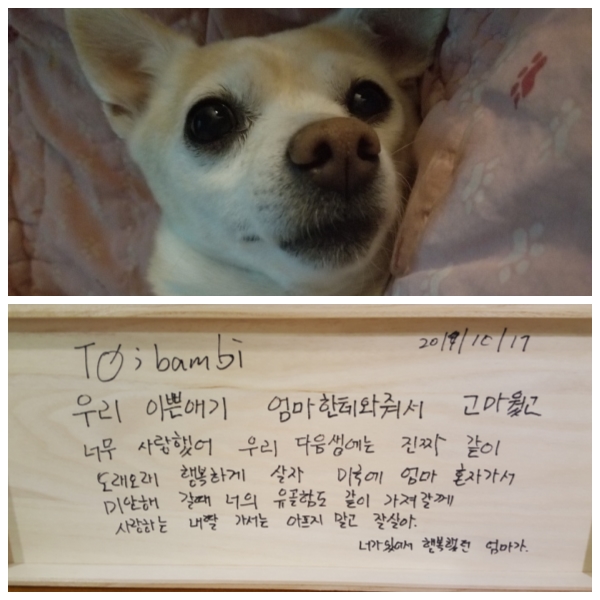 TO; bambi
2019/10/17
우리 이쁜애기 엄마한테와줘서 고마웠고
너무 사랑했어 우리 다음쌩에는 진짜 같이
오래오래 행복하게 살자 미국에 엄마 혼자가서
미안해 갈때 너의 유골함도 같이 가져갈께
사랑하는 내딸 가서는 아프지 말고 잘실아.
너가있에서 행복했던 엄마가.